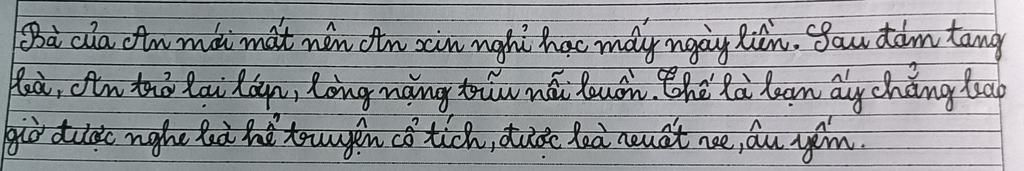 Bà của An mới mất nên An xin nghỉ học mấy ngày liền. Sau đám tang
bà, An trở lại lớp, lòng nặng trĩu nỗi buồn. Thế là bạn ấy chẳng bao
giờ được nghe bà kể truyện cổ tích, được bà vuốt ve, âu yếm.